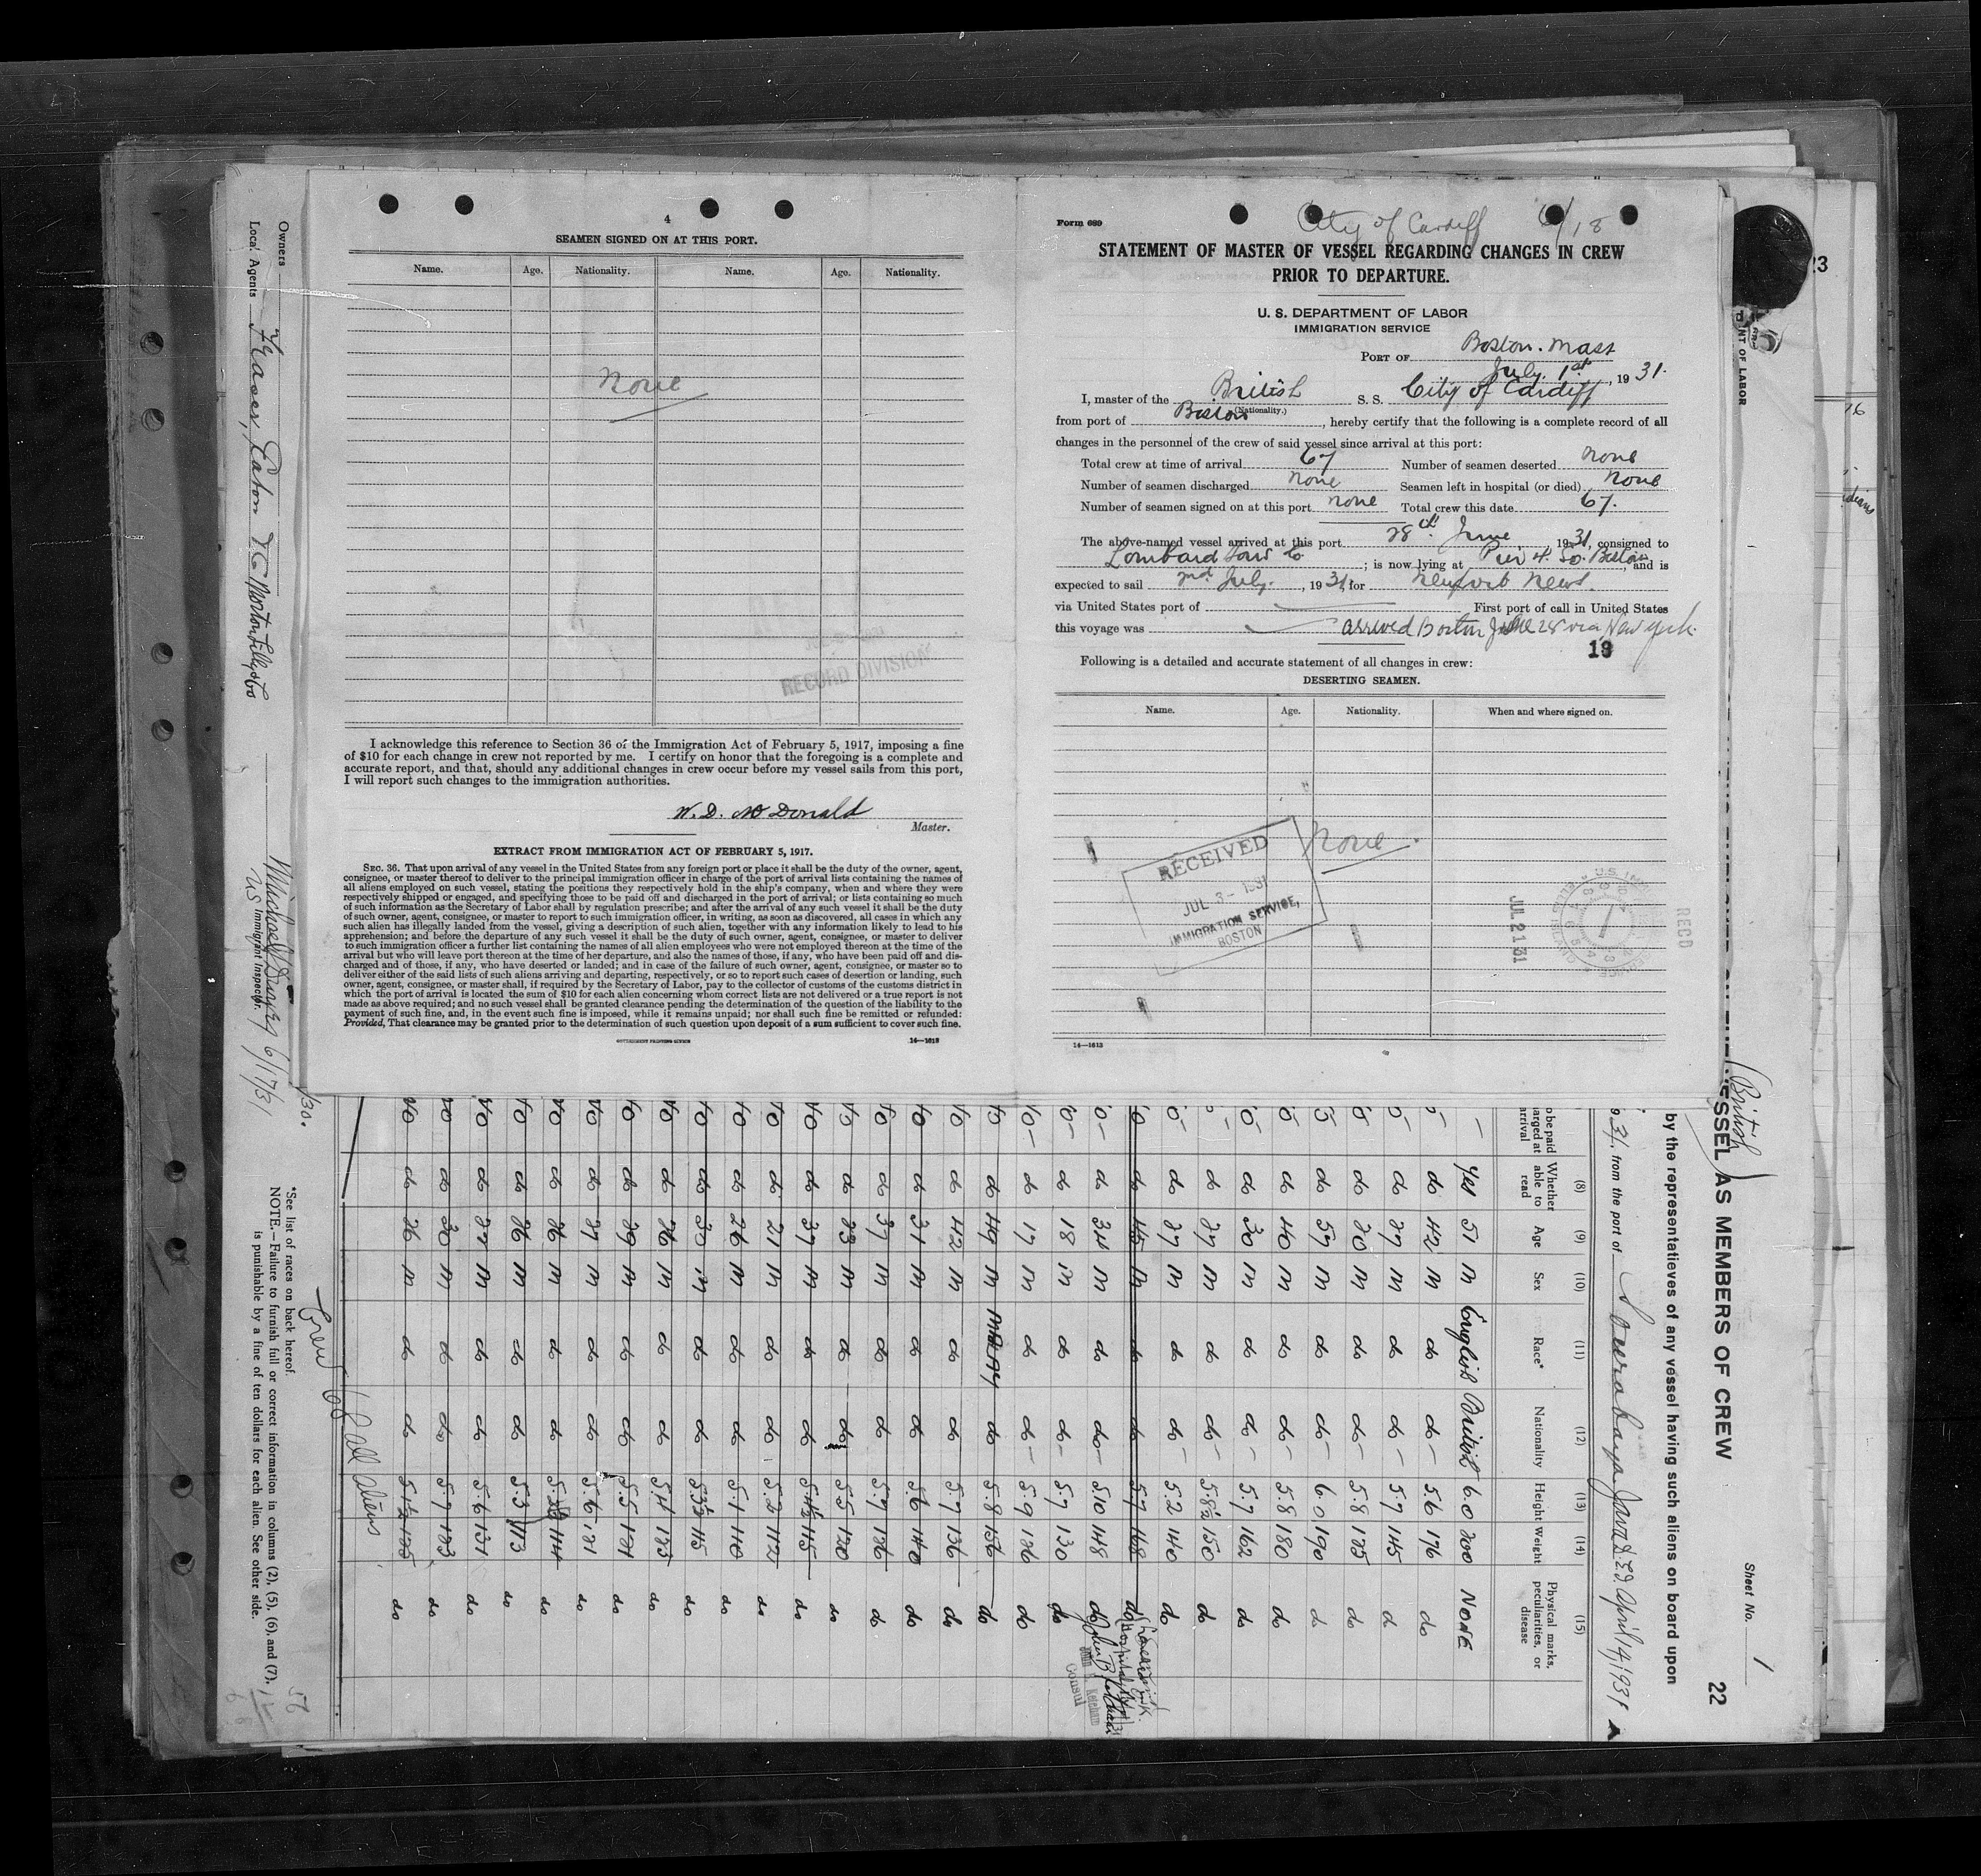 4
SEAMEN SIGNED ON AT THIS PORT.
Name. Age. Nationality. Name. Age. Nationality.
None
RECORD DIVISION
I acknowledge this reference to Section 36 of the Immigration Act of February 5, 1917, imposing a fine
of $10 for each change in crew not reported by me. I certify on honor that the foregoing is a complete and
accurate report, and that, should any additional changes in crew occur before my vessel sails from this port,
I will report such changes to the immigration authorities.
W. D. McDonald
Master.
EXTRACT FROM IMMIGRATION ACT OF FEBRUARY 5, 1917.
SEC. 36. That upon arrival of any vessel in the United States from any foreign port or place it shall be the duty of the owner, agent,
consignee, or master thereof to deliver to the principal immigration officer in charge of the port of arrival lists containing the names of
all aliens employed on such vessel, stating the positions they respectively hold in the ship's company, when and where they were
respectively shipped or engaged, and specifying those to be paid off and discharged in the port of arrival; or lists containing so much
of such information as the Secretary of Labor shall by regulation prescribe; and after the arrival of any such vessel it shall be the duty
of such owner, agent, consignee, or master to report to such immigration officer, in writing, as soon as discovered, all cases in which any
such alien has illegally landed from the vessel, giving a description of such alien, together with any information likely to lead to his
apprehension; and before the departure of any such vessel it shall be the duty of such owner, agent, consignee, or master to deliver
to such immigration officer a further list containing the names of all alien employees who were not employed thereon at the time of the
arrival but who will leave port thereon at the time of her departure, and also the names of those, if any, who have been paid off and dis-
charged and of those, if any, who have deserted or landed; and in case of the failure of such owner, agent, consignee, or master so to
deliver either of the said lists of such aliens arriving and departing, respectively, or so to report such cases of desertion or landing, such
owner, agent, consignee, or master shall, if required by the Secretary of Labor, pay to the collector of customs of the customs district in
which the port of arrival is located the sum of $10 for each alien concerning whom correct lists are not delivered or a true report is not
made as above required; and no such vessel shall be granted clearance pending the determination of the question of the liability to the
payment of such fine, and, in the event such fine is imposed, while it remains unpaid; nor shall such fine be remitted or refunded:
Provided, That clearance may be granted prior to the determination of such question upon deposit of a sum sufficient to cover such fine.
GOVERNMENT PRINTING OFFICE 14—1613
Form 689
City of Cardiff 6/18
STATEMENT OF MASTER OF VESSEL REGARDING CHANGES IN CREW
PRIOR TO DEPARTURE.
U. S. DEPARTMENT OF LABOR
IMMIGRATION SERVICE
PORT OF Boston. Mass
July. 1st, 1931.
I, master of the British S. S. City of Cardiff
(Nationality.)
from port of Boston, hereby certify that the following is a complete record of all
changes in the personnel of the crew of said vessel since arrival at this port:
Total crew at time of arrival 67 Number of seamen deserted none
Number of seamen discharged none Seamen left in hospital (or died) None
Number of seamen signed on at this port none Total crew this date 67.
The above-named vessel arrived at this port 28th June, 1931, consigned to
Lombard Sons Co; is now lying at Pier 4. So. Boston, and is
expected to sail 2nd July., 1931, for Newport News.
via United States port of First port of call in United States
this voyage was arrived Boston June 28 via New York
19
Following is a detailed and accurate statement of all changes in crew:
DESERTING SEAMEN.
Name. Age. Nationality. When and where signed on.
None.
RECEIVED
JUL 3 - 1931
IMMIGRATION SERVICE,
BOSTON
JUL 21 31
RECD
14—1613
Owners
Local Agents
Immigrant Inspector.
6/17/31
Sheet No. 1
22
British
VESSEL AS MEMBERS OF CREW
by the representatives of any vessel having such aliens on board upon
from the port of Soerabaya Java D.E.I. April 14, 1931
(8) (9) (10) (11) (12) (13) (14) (15)
Whether able to read Age Sex Race* Nationality Height Weight Physical marks, peculiarities, or disease
yes 51 M English British 6.0 200 NONE
do 42 M do do 5.6 176 do
do 27 M do do 5.7 145 do
do 20 M do do 5.8 175 do
do 57 M do do 6.0 190 do
do 40 M do do 5.8 180 do
do 30 M do do 5.7 162 do
do 27 M do do 5.8½ 150 do
do 27 M do do 5.2 140 do
do 45 M do do 5.7 168 do
do 34 M do do 5.10 148 do
do 18 M do do 5.7 130 do
do 17 M do do 5.9 126 do
do 49 M do 5.8 156 do
do 42 M do do 5.7 136 do
do 31 M do do 5.6 140 do
do 37 M do do 5.7 126 do
do 23 M do do 5.5 120 do
do 37 M do do 5.4½ 115 do
do 21 M do do 5.2 112 do
do 26 M do do 5.1 110 do
do 30 M do do 5.3½ 115 do
do 26 M do do 5.4 123 do
do 29 M do do 5.5 121 do
do 27 M do do 5.6 121 do
do 26 M do do 114 do
do 26 M do do 5.3 113 do
do 28 M do do 5.6 131 do
do 30 M do do 5.7 123 do
do 26 M do do 5.1½ 125 do
Consul
Crew 68 all aliens
*See list of races on back hereof.
NOTE.—Failure to furnish full or correct information in columns (2), (5), (6), and (7),
is punishable by a fine of ten dollars for each alien. See other side.